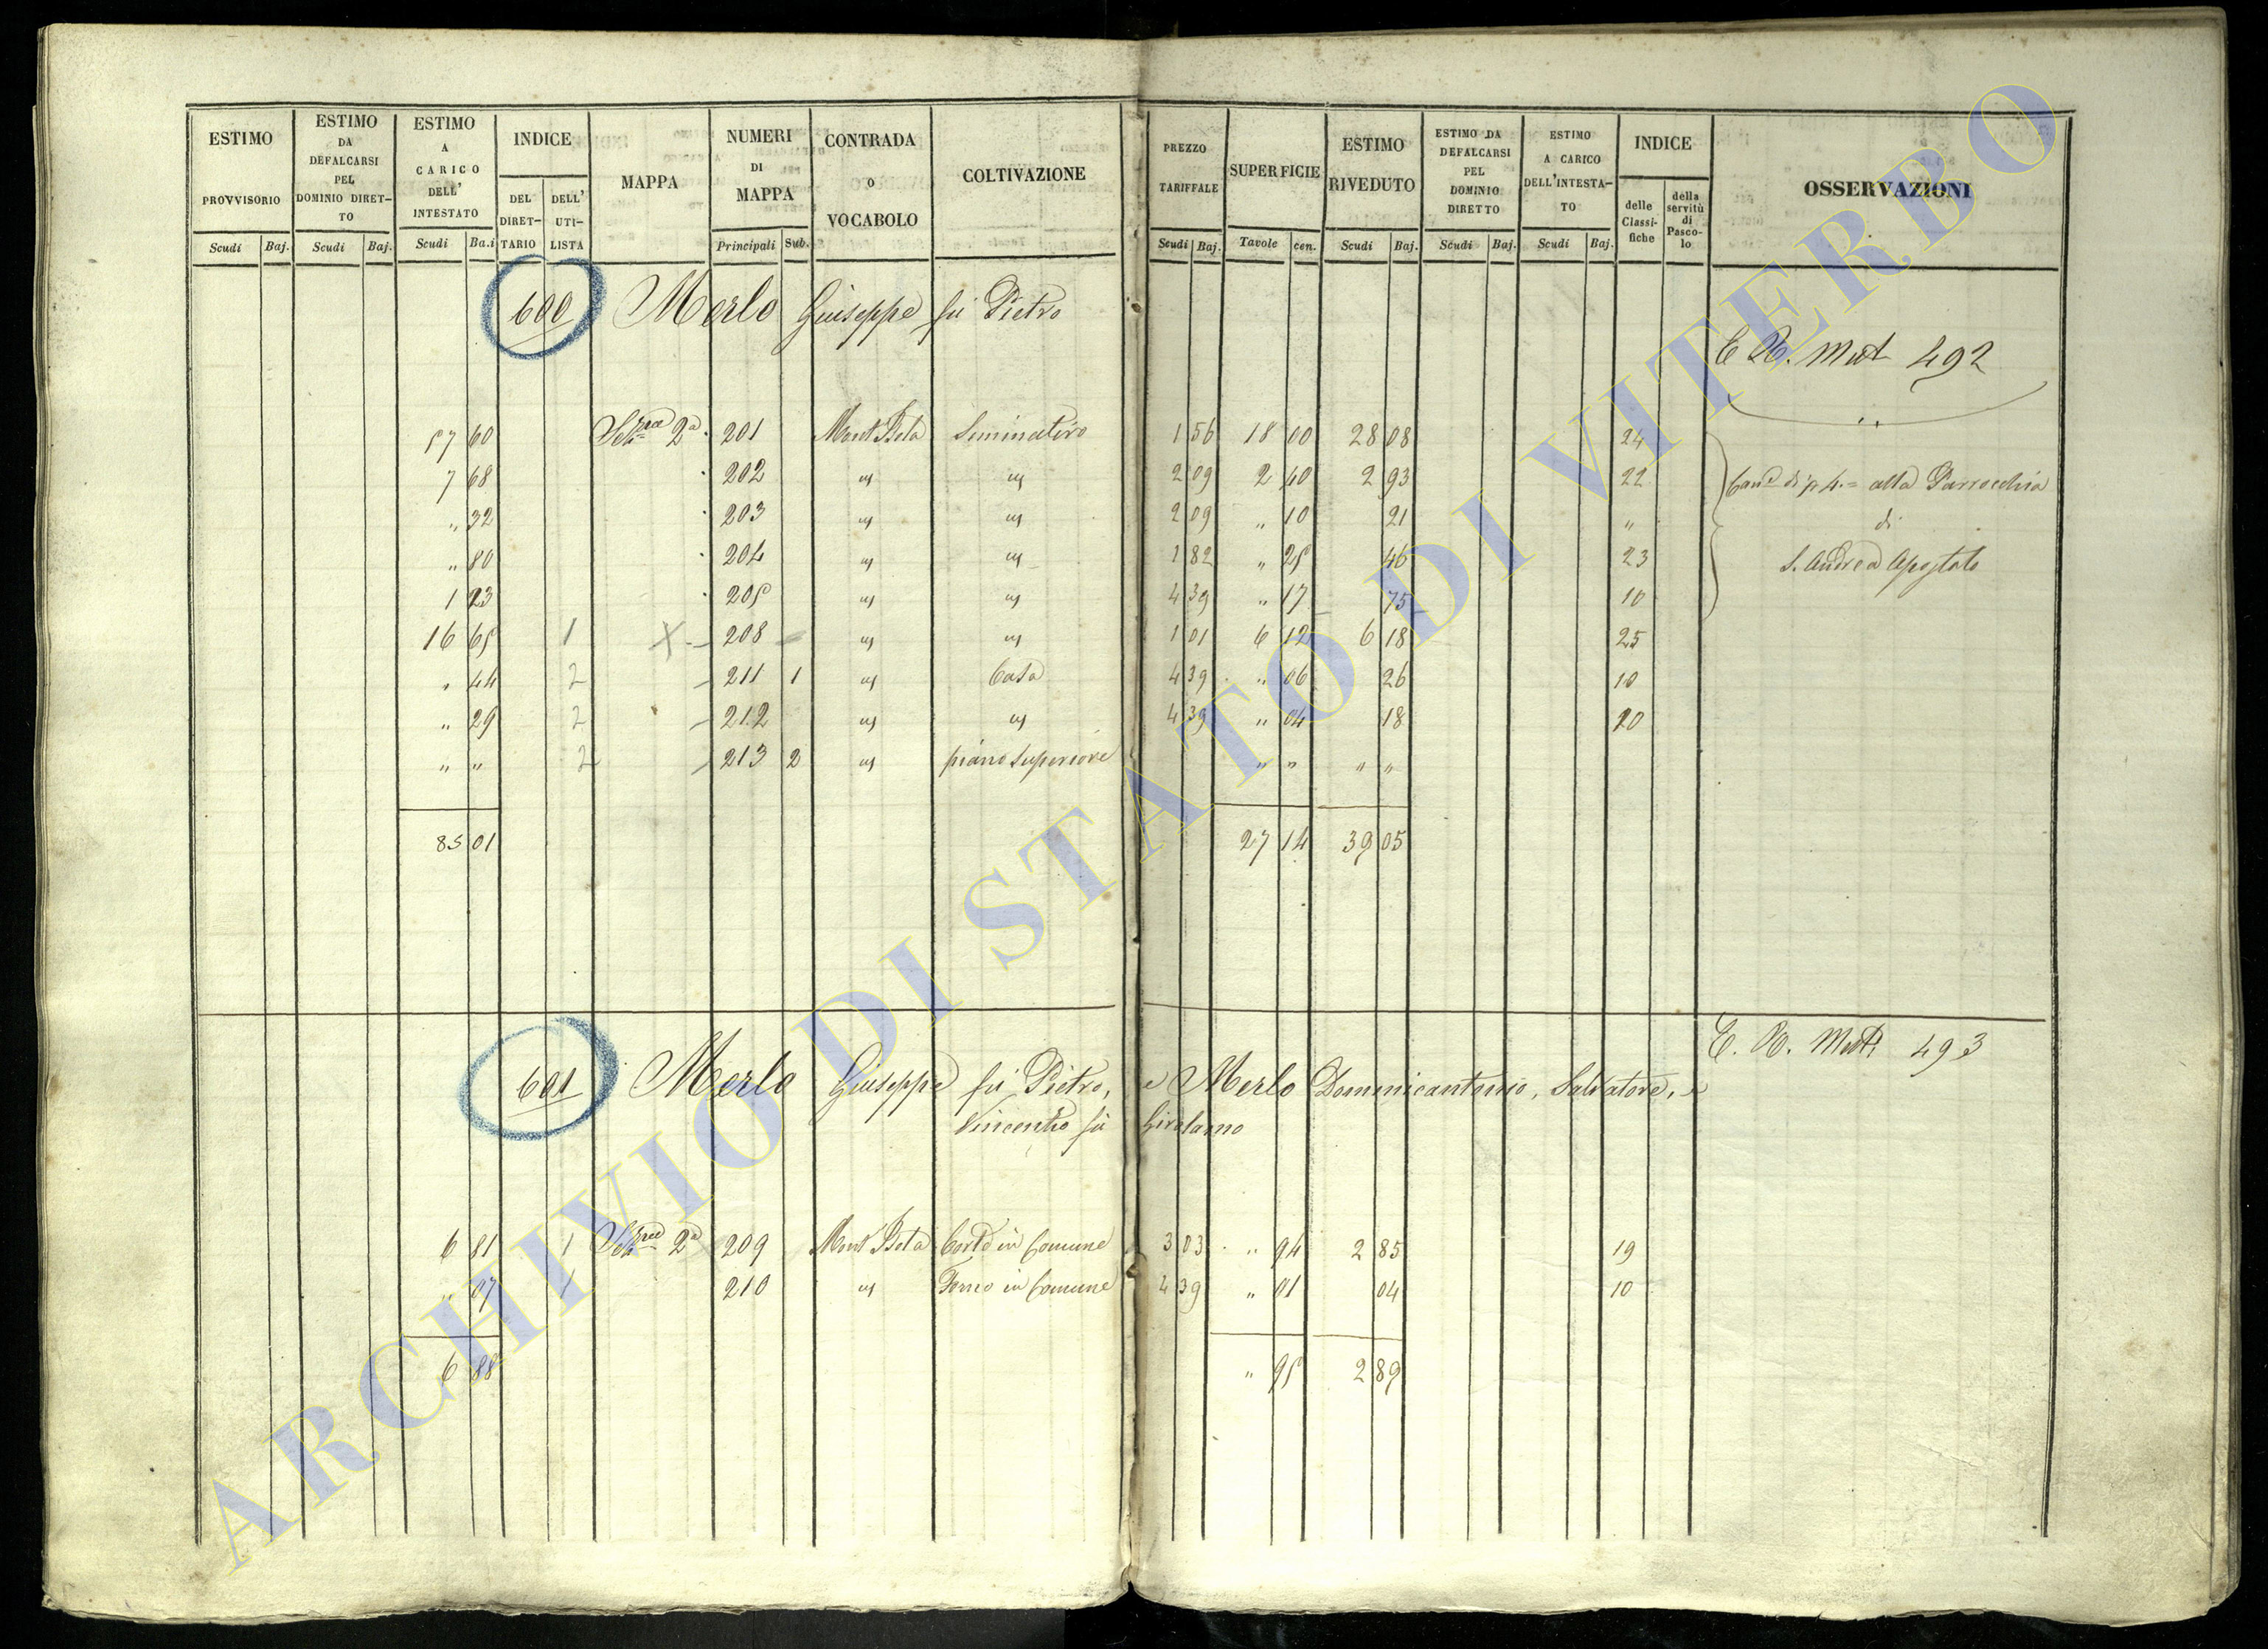 ESTIMO PROVVISORIO Scudi Baj.
ESTIMO DA DEFALCARSI PEL DOMINIO DIRETTO Scudi Baj.
ESTIMO A CARICO DELL' INTESTATO Scudi Baj.
INDICE DEL DIRETTARIO DELL' UTILISTA
MAPPA
NUMERI DI MAPPA Principali Sub.
CONTRADA O VOCABOLO
COLTIVAZIONE
PREZZO TARIFFALE Scudi Baj.
SUPERFICIE Tavole cen.
ESTIMO RIVEDUTO Scudi Baj.
ESTIMO DA DEFALCARSI PEL DOMINIO DIRETTO Scudi Baj.
ESTIMO A CARICO DELL'INTESTATO Scudi Baj.
INDICE delle Classifiche della servitù di Pascolo
OSSERVAZIONI
600 Merlo Giuseppe fù Pietro
Mut 492
57 60 2a 201 Mont Beta Seminativo 1 56 18 00 28 08 24
7 68 202 " " 2 09 2 40 2 93 22 alla Parrocchia
" 32 203 " " 2 09 " 10 21 " di
" 80 204 " " 1 82 " 25 46 23 S. Andrea Apostolo
1 23 205 " " 4 39 " 17 75 10
16 65 1 X 208 " " 1 01 6 12 6 18 25
" 44 2 211 1 " Casa 4 39 " 06 26 10
" 29 2 212 " " 4 39 " 04 18 10
" " 2 213 2 " piano superiore " " " "
85 01 27 14 39 05
601 Merlo Giuseppe fù Pietro, e Merlo Domenicantonio, Salvatore, e
Vincenzo fù Girolamo
493
6 81 1 2a 209 Mont Beta Corte in Comune 3 03 " 94 2 85 19
" 07 1 210 " Forno in Comune 4 39 " 01 04 10
6 88 " 95 2 89
ARCHIVIO DI STATO DI VITERBO